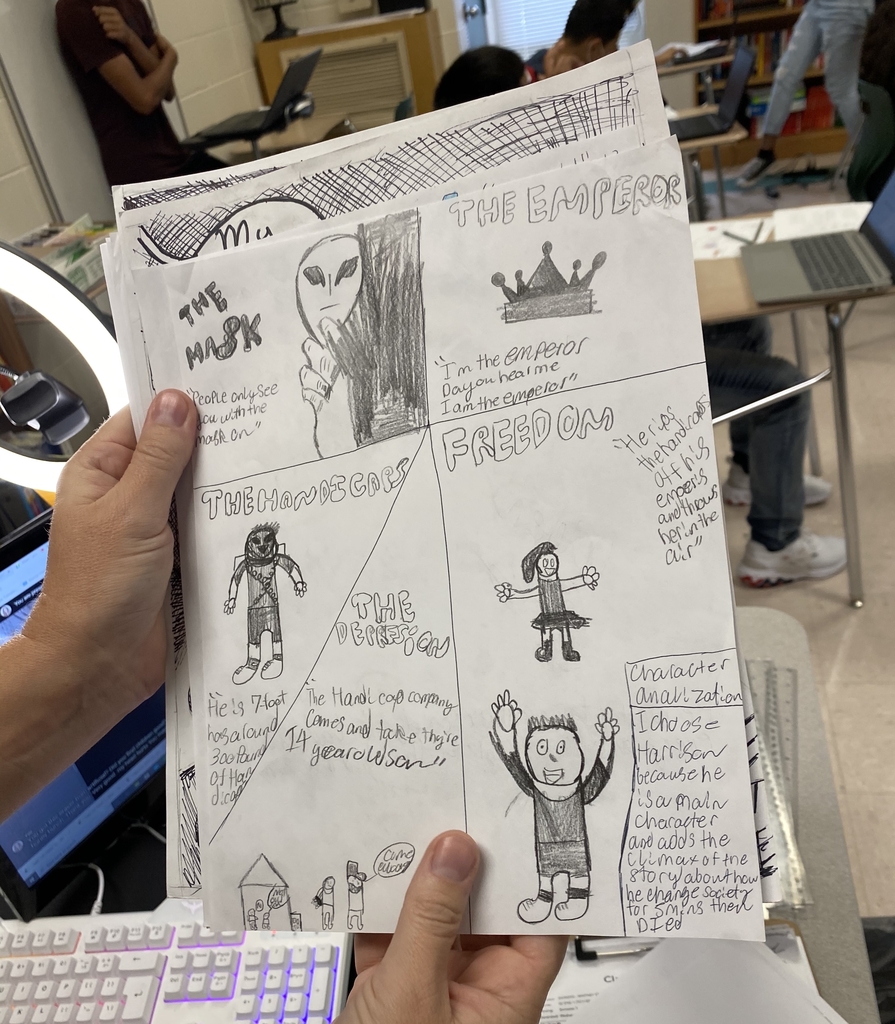 My
THE
MASK
"People only see
you with the
mask on"
THE EMPEROR
"I'm the emperor
Do you hear me
I am the emperor"
THE HANDICAPS
"He is 7 foot
has around
300 Pound
of Han
dicap
THE
DEPRESION
"The Handi cap company
comes and take they're
14 year old son"
come
FREEDOM
"He rips
the handcaps
off his
emperis
and throws
her in the
air"
Character
analization
I choose
Harrison
because he
is a main
character
and adds the
climax of the
story about how
he change society
for 5 mins then
DIED